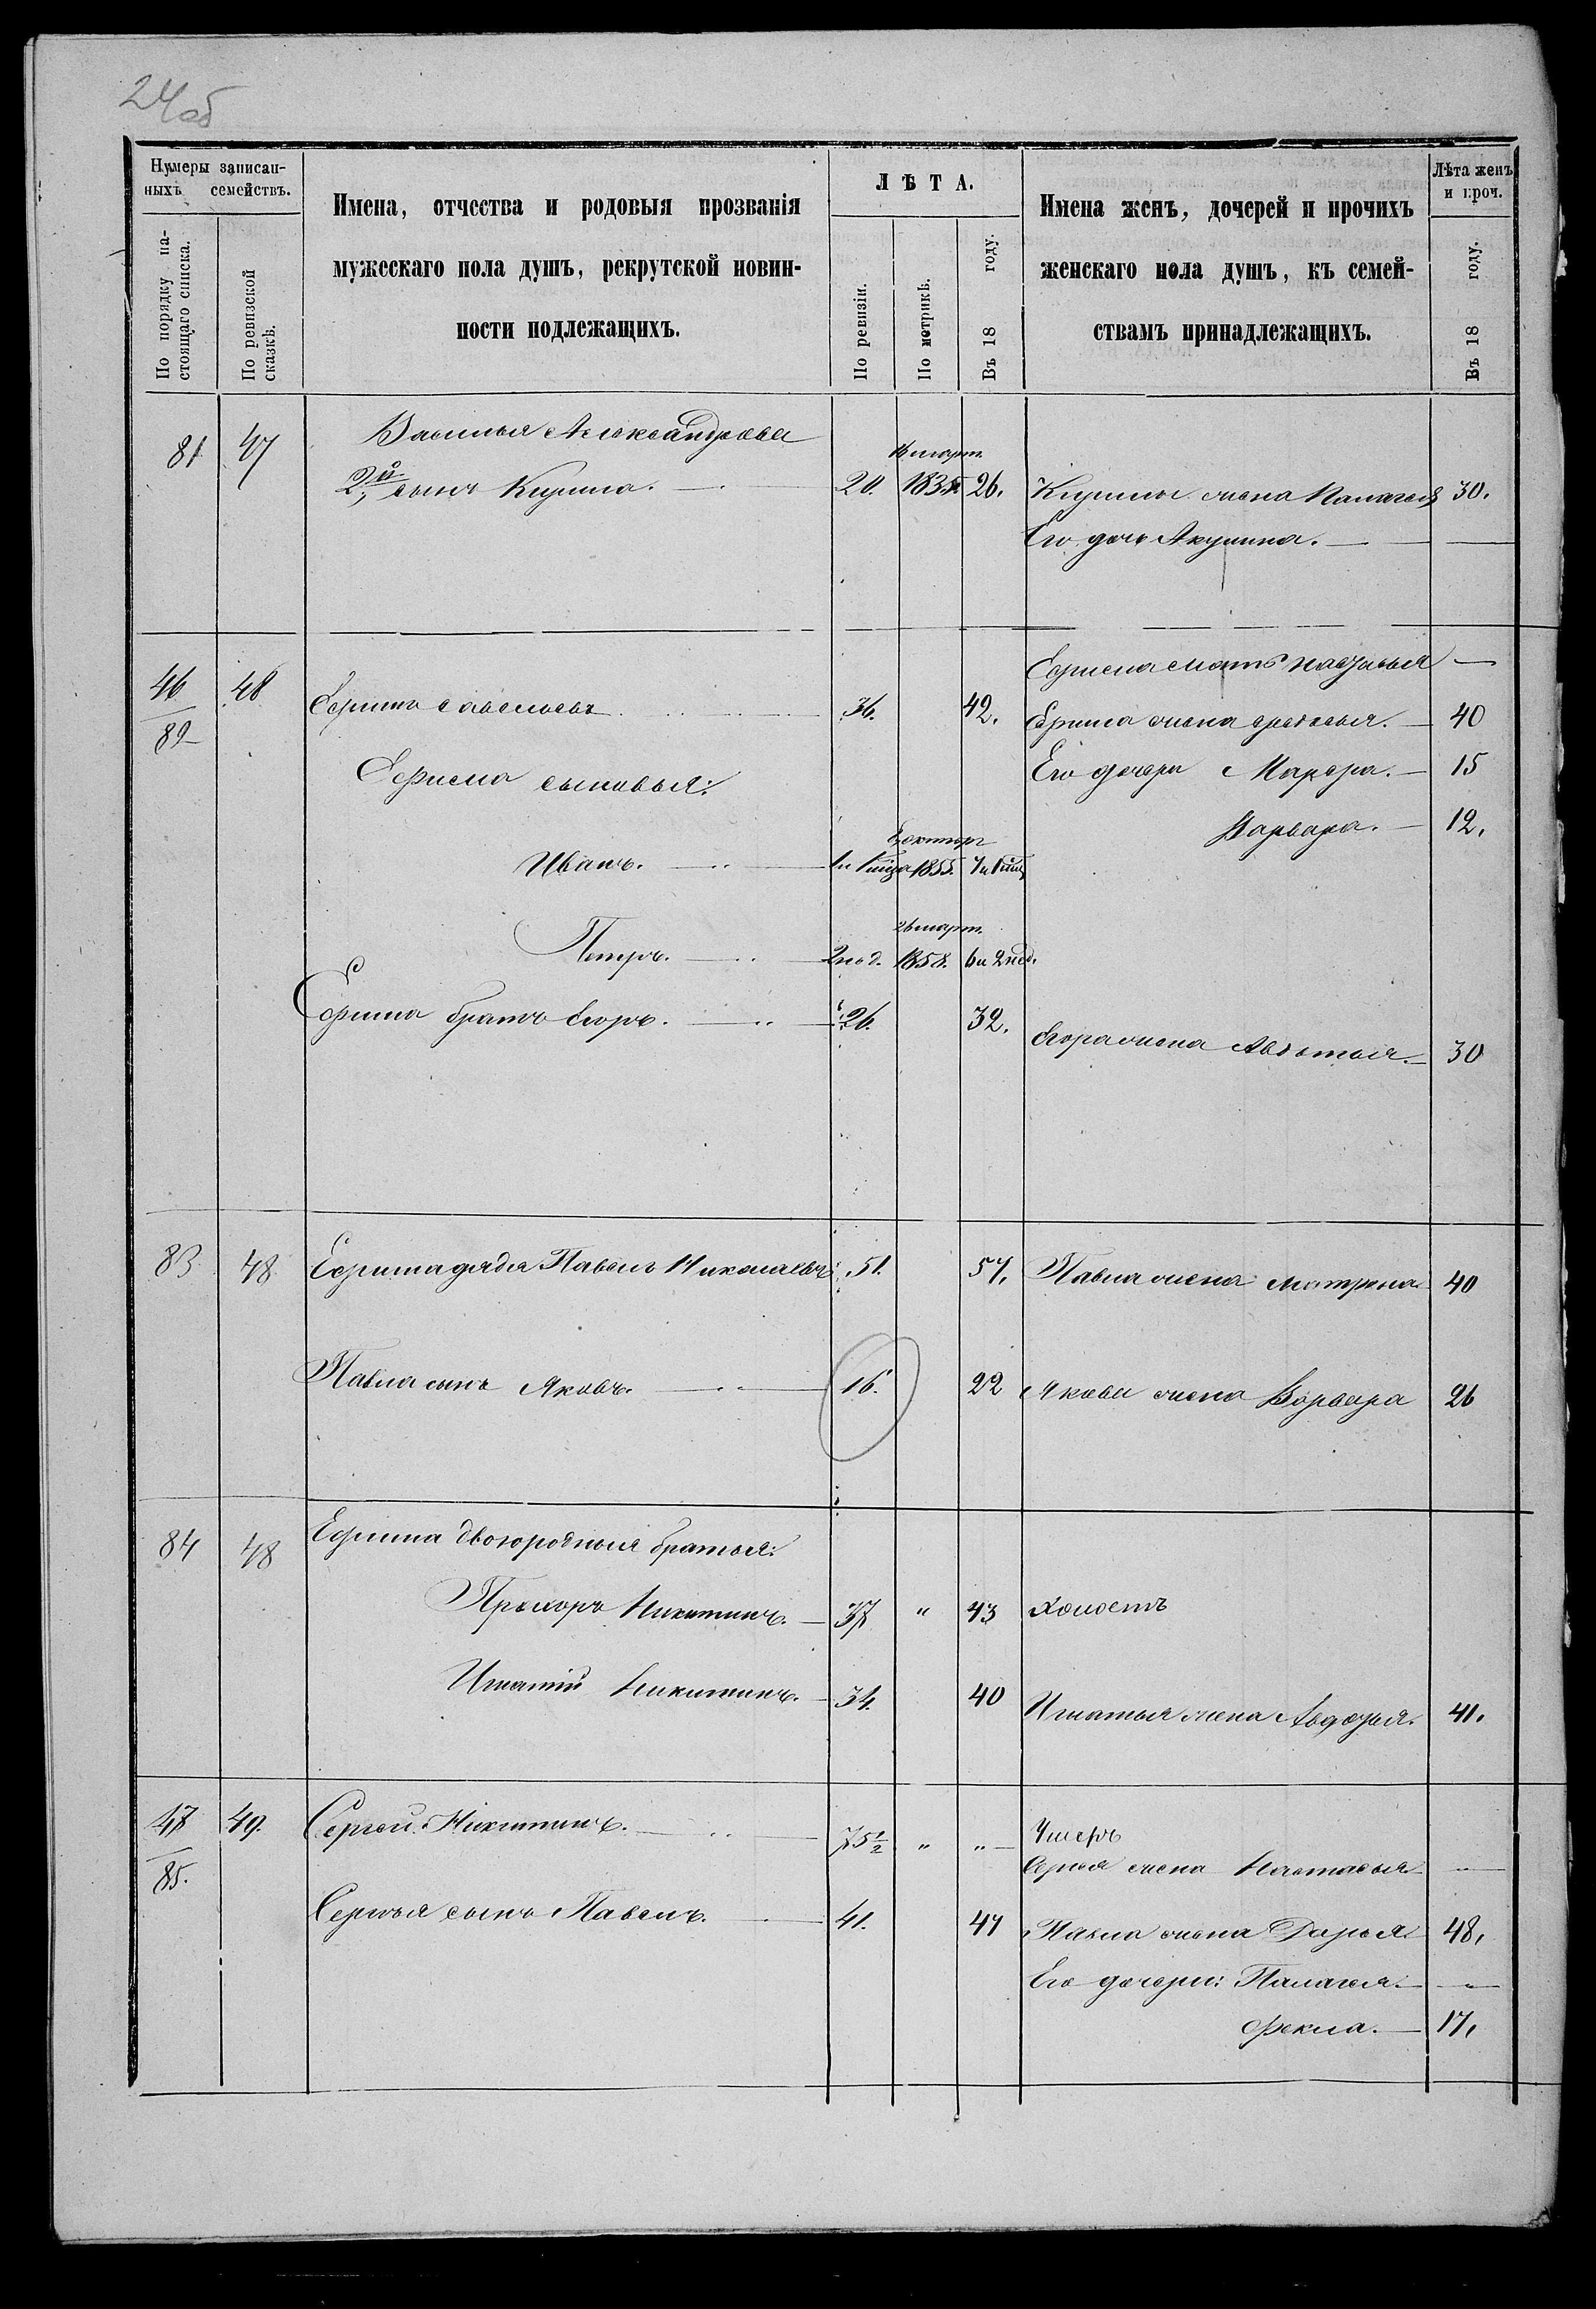 24об
Нумеры записан-
ныхъ семействъ.
По порядку на-
стоящаго списка.
По ревизской
сказкѣ.
Имена, отчества и родовыя прозванія
мужескаго пола душъ, рекрутской повин-
ности подлежащихъ.
ЛѢТА.
По ревизіи.
По метрикѣ.
Въ 18 году.
Имена женъ, дочерей и прочихъ
женскаго пола душъ, къ семей-
ствамъ принадлежащихъ.
Лѣта женъ
и проч.
Въ 18 году.
81 47 Василья Александрова
2й сынъ Кирила. 20. март. 26. Кирилы жена Палагея 30.
Его дочь Акулина. —
Ефима мать —
46 48 Ефимъ Савельевъ 36. 42. Ефима жена 40
82
Ефима сыновья: Его дочери Марфра. — 15
Варвара. — 12.
октябр
Иванъ. 1855.
26 март.
Петръ. 2 нед. 1858. 6 и 2 нед.
Ефима братъ Егоръ. 26. 32. Егора жена Авдотья. 30
83 48 Ефима дядя Павелъ Николаевъ 51. 57. Павла жена Матрена 40
Павла сынъ Яковъ. 16. 22 Якова жена Варвара 26
84 48 Ефима двоюродныя братья:
Прохоръ Никитинъ. — 37 " 43 Холостъ
Игнатій Никитинъ. — 34. 40 Игнатья жена Авдотья. 41.
47 49. Сергей Никитинъ. 75½ " " — Умеръ
85. Сергея жена Настасья —
Сергея сынъ Павелъ. 41. 47 Павла жена Дарья. 48.
Его дочери: Палагея. —
Фекла. — 17.